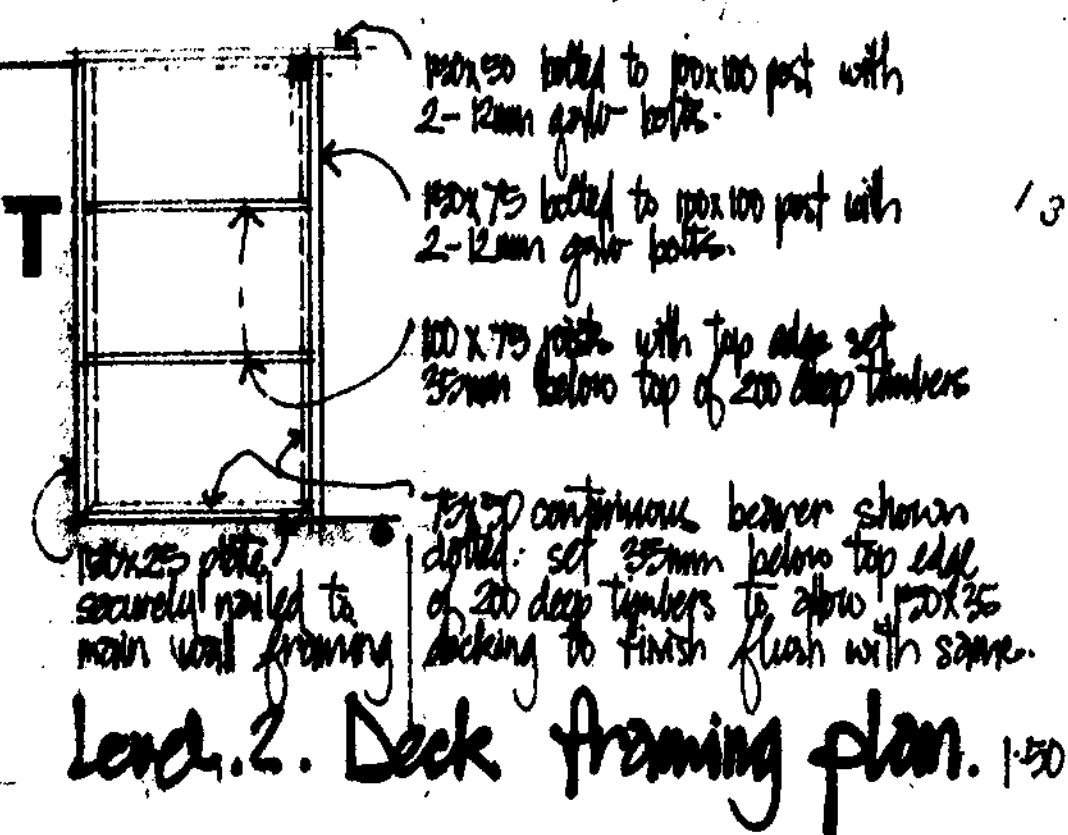 150x50 bolted to 100x100 post with
2-12mm galv bolts.
T
150x75 bolted to 100x100 post with
2-12mm galv bolts.
100 x 75 joists with top edge set
35mm below top of 200 deep timbers
75x50 continuous bearer shown
dotted: set 35mm below top edge
of 200 deep timbers to allow 150x35
decking to finish flush with same.
securely nailed to
main wall framing
Level.2. Deck framing plan. 1:50